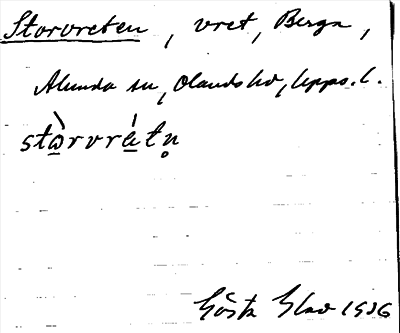 Storvreten, vret, Berga,
Alunda sn, Olands hd, Upps. l.
stὼ̲rvrá̲tn̥
Gösta Elov 1936